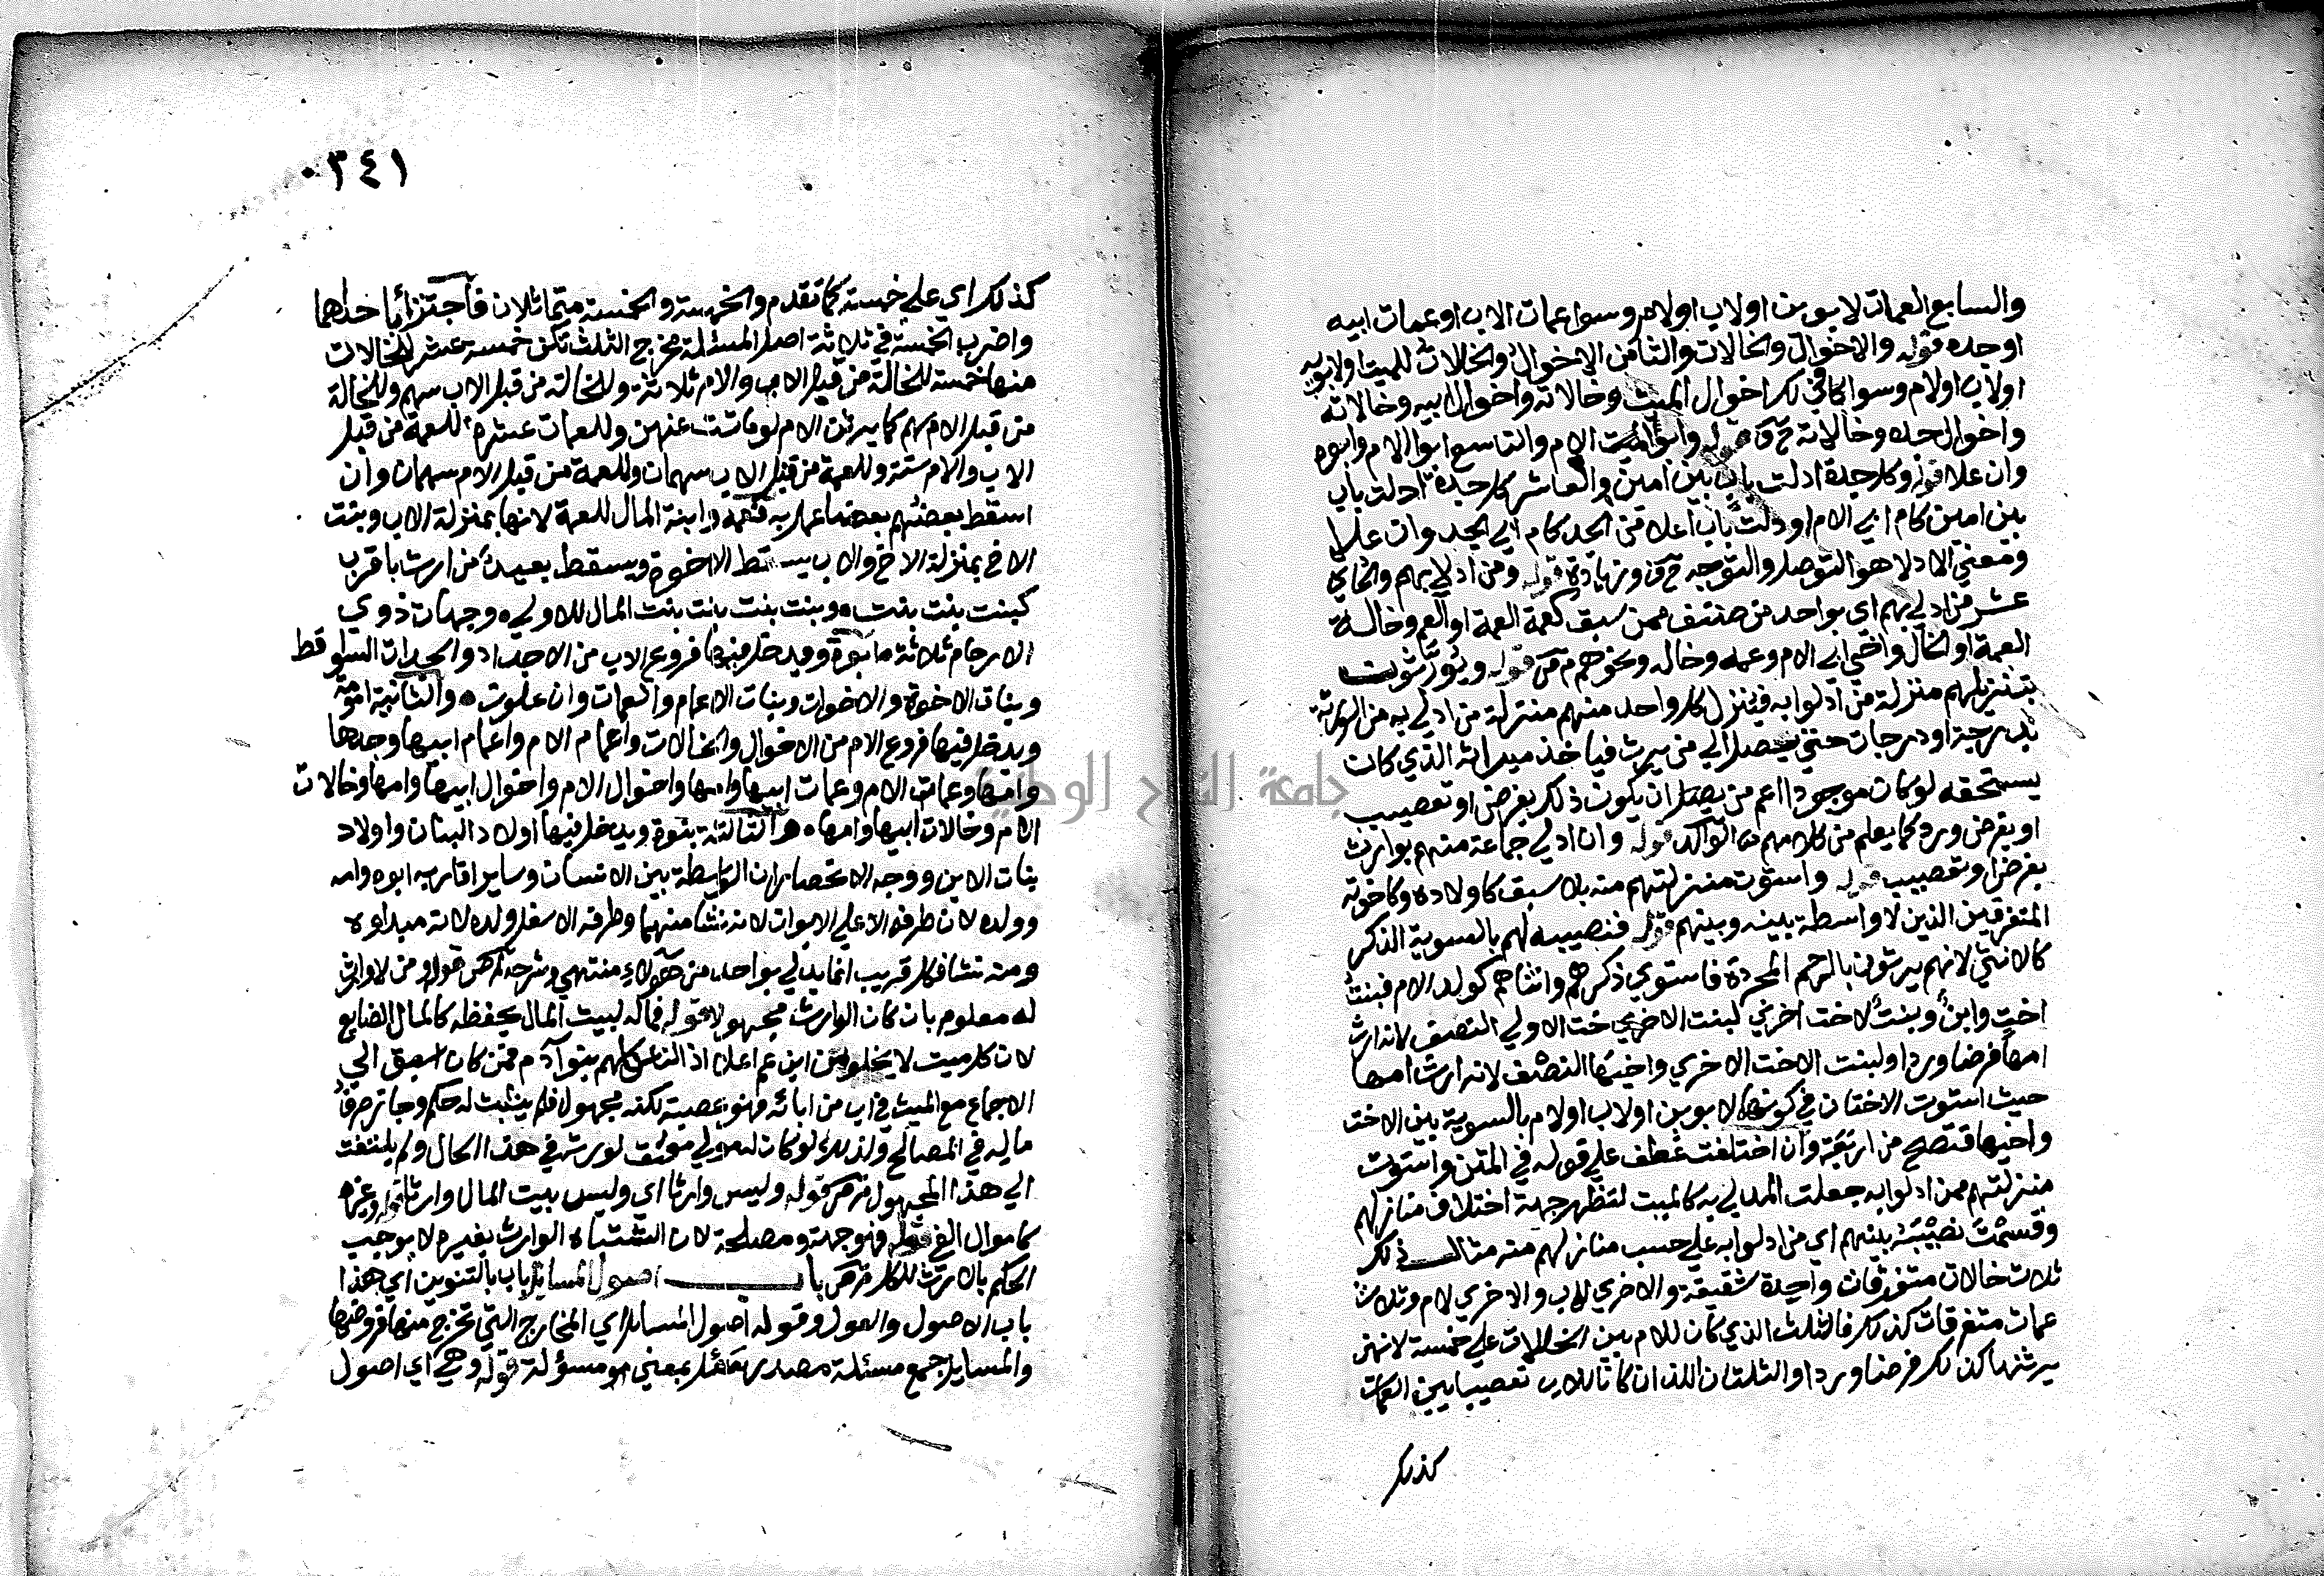 والسابع العمات لابوين اولاب اولام وسوا عمات الاب او عمات ابيه
او جده قوله والاخوال والخالات والثامن الاخوال والخالات للميت اولابويه
اولاب اولام وسوا كا في لك اخوال الميت وخالاته واخوال ابيه وخالاته
واخوال جده وخالاته وابو الام والتاسع ابو الام وابوه
وان علا قوله وكل جدة ادلت باب بين امين والعاشر كل جدة ادلت باب
بين امين كام ابي الام او ادلت باب اعلا من الجد كام ابي الجد وان علا
ومعني الادلا هو التوصل والتوجه وزيادة قوله ومن ادلي بهم والحادي
عشر من ادلي بهم اي بواحد من صنف ممن سبق كعمة العمة او العم وخالة
العمة او الخال واخي ابي الام وعمه وخاله ونحوهم قوله ويورثون
بتنزيلهم منزلة من ادلوا به فينزل كل واحد منهم منزلة من ادلي به من الورثة
بدرجة او درجات حتي يصل الي من يرث فياخذ ميراثه الذي كان
يستحقه لو كان موجودا اعم من ان يكون ذلك بفرض او تعصيب
او بفرض ورد كما يعلم من كلامهم قوله وان ادلي جماعة منهم بوارث
بفرض او تعصيب قوله واستوت منزلتهم منه بلا سبق كاولاده وكاخوته
المتفرقين الذين لا واسطة بينه وبينهم قوله فنصيبه لهم بالسوية الذكر
كالانثي لانهم يرثون بالرحم المجردة فاستوي ذكرهم وانثاهم كولد الام فبنت
اخت وابن وبنت لاخت اخري لبنت الاخت الاولي النصف لانه ارث
امها فرضا وردا ولبنت الاخت الاخري واخيها النصف لانه ارث امها
حيث استوت الاختان في كونهما لابوين اولاب اولام بالسوية بين الاخت
واخيها فتصح من اربعة وان اختلفت عطف علي قوله في المتن واستوت
منزلتهم ممن ادلوا به جعلت المدلي به كالميت لتظهر جهة اختلاف منازلهم
وقسمت نصيبه بينهم اي من ادلوا به علي حسب منازلهم منه مثال ذلك
ثلاث خالات متفرقات واحدة شقيقة والاخري للاب والاخري لام وثلاث
عمات متفرقات كذلك فالثلث الذي كان للام بين الخالات علي خمسة لانهن
يرثنها كذلك فرضا وردا والثلثان اللذان كانا للاب تعصيبا بين العمات
كذلك
٣٤١
كذلك اي علي خمسة كما تقدم والخمسة والخمسة متماثلان فاجتزئ باحداهما
واضرب الخمسة في ثلاثة اصل المسئلة مخرج الثلث تكن خمسة عشر للخالات
منها خمسة للخالة من قبل الاب والام ثلاثة وللخالة من قبل الاب سهم وللخالة
من قبل الام سهم كما يرثن الام لو ماتت عنهن وللعمات عشرة للعمة من قبل
الاب والام ستة وللعمة من قبل الاب سهمان وللعمة من قبل الام سهمان وان
اسقط بعضهم بعضا عمل به فعمة وابنة المال للعمة لانها بمنزلة الاب وبنت
الاخ بمنزلة الاخ والاب يسقط الاخوة ويسقط بعيد من ارث باقرب
كبنت بنت بنت وبنت بنت بنت بنت المال للاولي وجهات ذوي
الارحام ثلاثة ابوة ويدخل فيها فروع الاب من الاجداد والجدات السواقط
وبنات الاخوة والاخوات وبنات الاعمام والعمات وان علون والثانية امومة
ويدخل فيها فروع الام من الاخوال والخالات واعمام الام واعمام ابيها وجدها
وامها وعمات الام وعمات ابيها وامها واخوال الام واخوال ابيها وامها وخالات
الام وخالات ابيها وامها والثالثة بنوة ويدخل فيها اولاد البنات واولاد
بنات الابن ووجه الانحصار ان الواسطة بين الانسان وساير اقاربه ابوه وامه
وولده لان طرفه الاعلي الابوان لانه نشا منهما وطرفه الاسفل ولده لانه مبداوه
ومنه نشا فكل قريب انما يدلي بواحد من هولاء منتهي وشرحه قوله ومن لا وارث
له معلوم بان كان الوارث مجهولا قوله فماله لبيت المال يحفظه كالمال الضايع
لان كل ميت لا يخلو من ابن عم اعلا اذ الناس كلهم بنو آدم فمن كان اسبق الي
الاجماع مع الميت في اب من ابائه فهو عصبة لكنه مجهول فلم يثبت له حكم وجاز صرف
ماله في المصالح ولذلك لو كان له مولي معتق لورثه في هذا الحال ولم يلتفت
الي هذا المجهول قوله وليس وارثا اي وليس بيت المال وارثا قوله وغيره
كاموال الفي قوله فهو جهة ومصلحة لان اشتباه الوارث بغيره لا يوجب
الحكم بالارث للكل باب اصول المسايل باب بالتنوين اي هذا
باب الاصول والعول وقوله اصول المسايل اي المخارج التي تخرج منها فروضها
والمسايل جمع مسئلة مصدر بمعني مسؤلة قوله وهي اي اصول